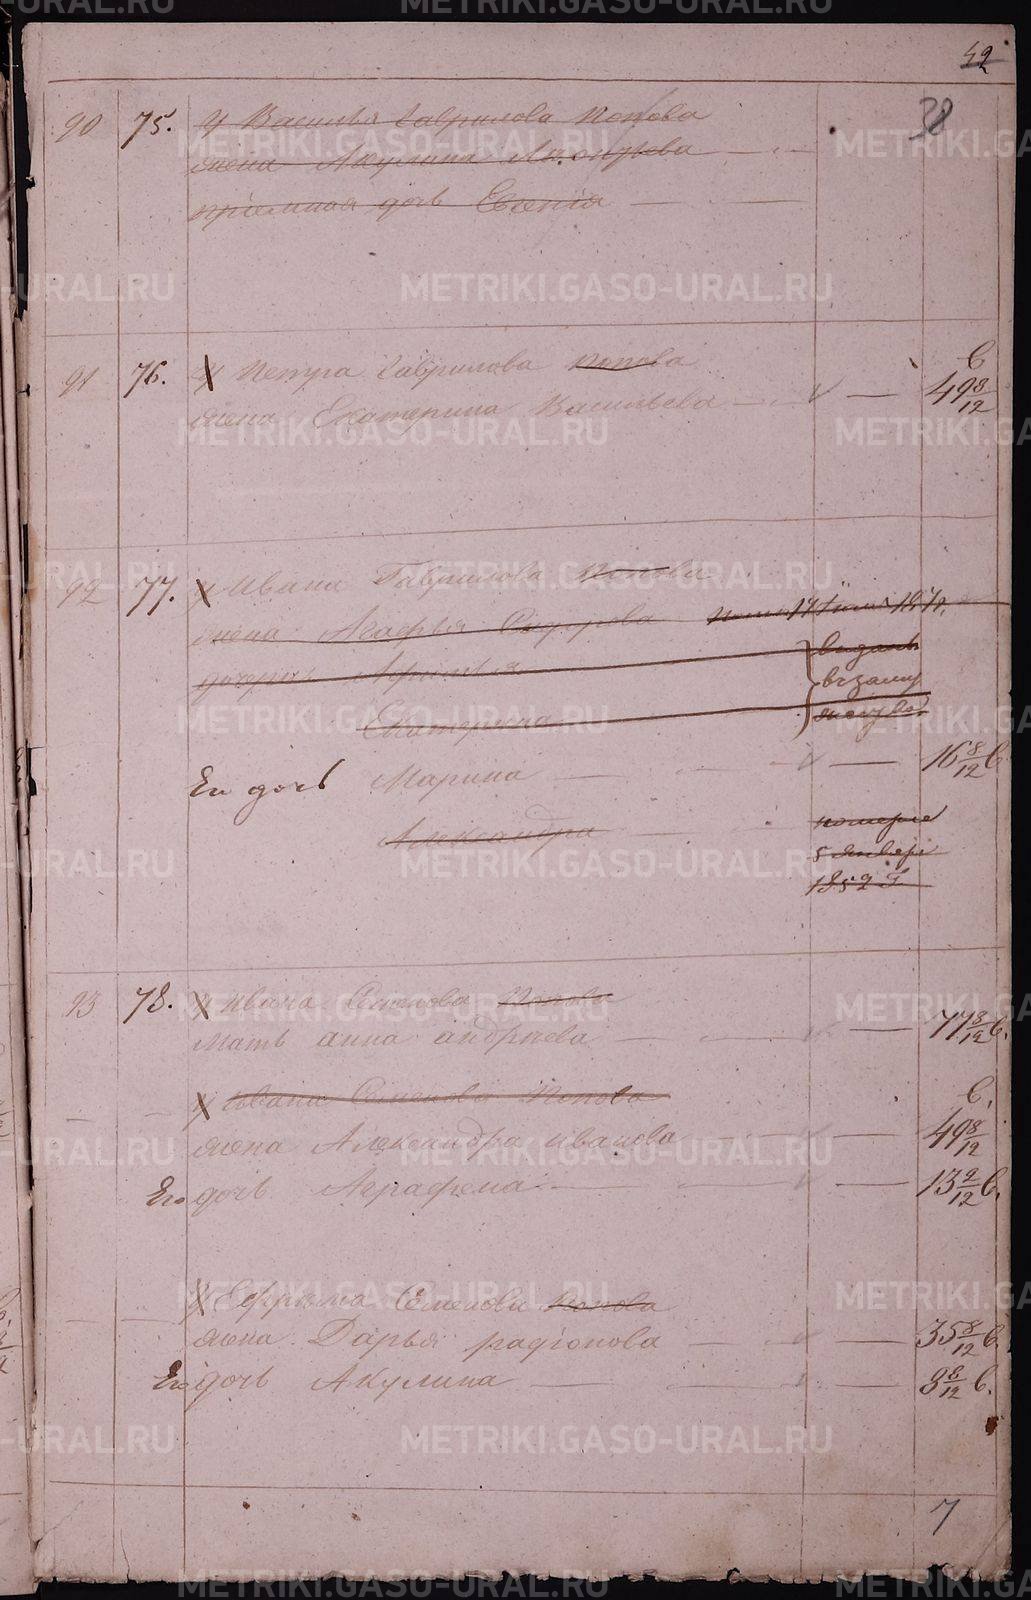 42
38
90 75. У Василья Гаврилова Попова
жена Акулина Леонтьева
приемная дочь Евгенія
91 76. У Петра Гаврилова Попова
жена Екатерина Васильева — 49 8/12 в
92 77. У Ивана Гаврилова Попова
жена Агафья
дочери
Екатерина
выданы
в замужество
Ея дочь Марина — 16 8/12 в
Александра
померла
5 Января
1859 г.
93 78. У Ивана Семенова Попова
мать анна андреева — 77 8/12 в.
У Ивана Семенова Попова
жена Александра иванова — 49 8/12 в.
Ея дочь Аграфена — 13 2/12 в.
У Ефрема Семенова Попова
жена Дарья радіонова — 35 8/12 в.
Ея дочь Акулина — 8/12 в.
7
METRIKI.GASO-URAL.RU